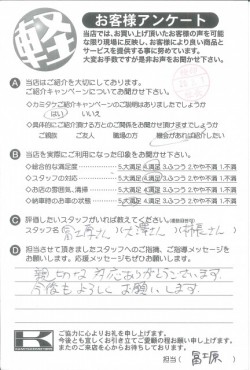 軽
お客様アンケート
当店では、お買い上げ頂いたお客様の声を可能な
限り現場に反映し、お客様により良い商品と
サービスを提供する事に努めています。
大変お手数ですが是非お声をお聞かせ下さい。
A 当店はご紹介を大切にしております。
ご紹介キャンペーンについてお聞かせ下さい。
◇カミタケご紹介キャンペーンのご説明はありましたでしょうか
はい いいえ
◇具体的にご紹介頂ける方とのご関係をお聞かせ頂けますでしょうか
ご親族 ご友人 職場の方 機会があれば紹介したい
B 当店を実際にご利用になった印象をお聞かせ下さい。
◇総合的な満足度 5.大満足 4.満足 3.ふつう 2.やや不満 1.不満
◇スタッフの対応 5.大満足 4.満足 3.ふつう 2.やや不満 1.不満
◇お店の雰囲気、清掃 5.大満足 4.満足 3.ふつう 2.やや不満 1.不満
◇納車時のお車の状態 5.大満足 4.満足 3.ふつう 2.やや不満 1.不満
C 辞退したいスタッフがいれば教えてください。
スタッフ名( 冨原さん )( さん )( さん )
D 担当させて頂きましたスタッフへのご指摘、ご指導メッセージを
お願いします。応援メッセージもぜひお願いします。
親切な対応ありがとうございます。
今後もよろしくお願いします。
K
ご協力に心よりお礼を申し上げます。
今後とも宜しくお引き立てご愛顧の程お願い申し上げます。
またのご来店を心からお待ちしております。
担当( 冨原 )